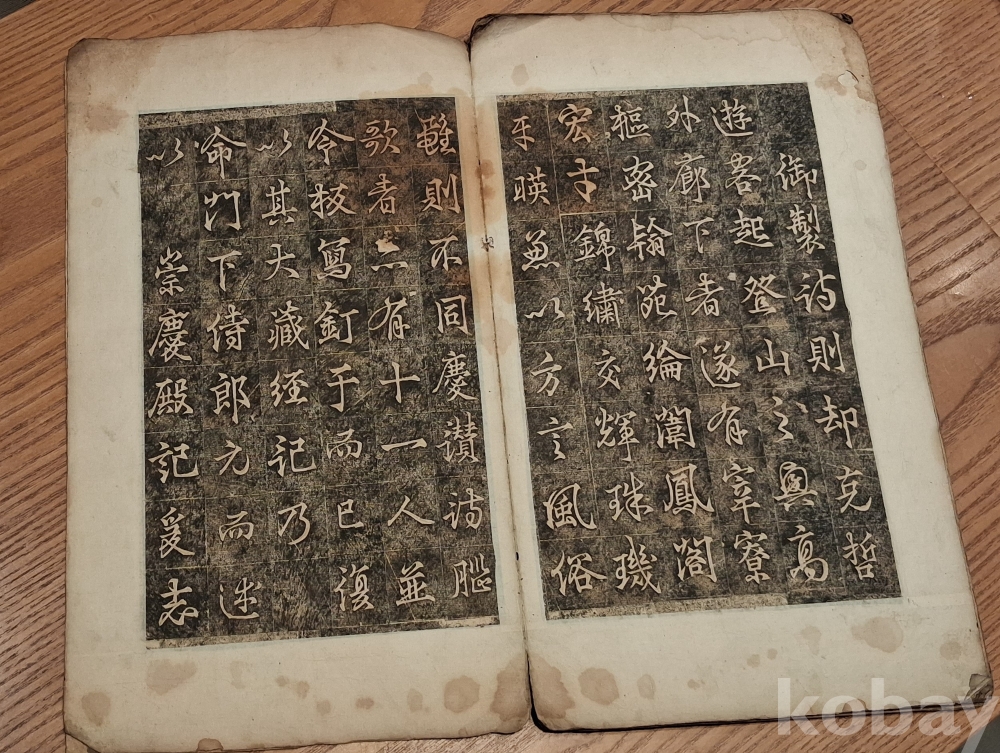 御製詩則却克哲
遊起登山之興高
外廊下者遂有宰寮
樞密翰苑綸闈鳳閣
宏才錦繡交輝珠璣
互暎兼以方言風俗
雖則不同慶讚詩
歌者亦有十一人並
令板寫釘于而已復
以其大藏經記乃
命門下侍郎元而述
以崇慶殿記爰志
kobay